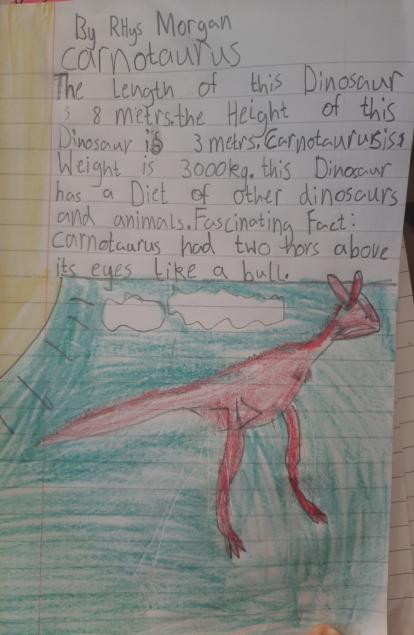 By RHys Morgan
carnotaurus
The Length of this Dinosaur
is 8 metrs.the Height of this
Dinosaur is 3 metrs.Carnotauruss
Weight is 3000kg. this Dinosaur
has a Diet of other dinosaurs
and animals.Fascinating Fact:
Carnotaurus had two hors above
its eyes Like a bull.